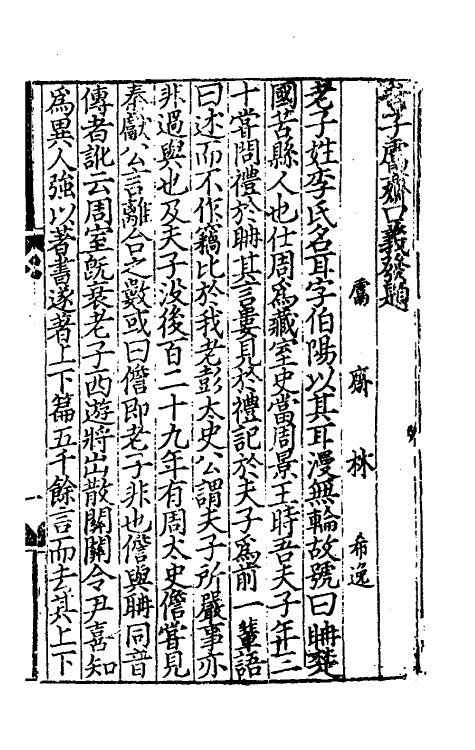 老子鬳齋口義發題
鬳齋林希逸
老子姓李氏名耳字伯陽以其耳漫無輪故號曰聃楚
國苦縣人也仕周爲藏室史當周景王時吾夫子年三
十嘗問禮於聃其言屢見於禮記於夫子爲前一輩語
曰述而不作竊比於我老彭太史公謂夫子所嚴事亦
非過與也及夫子沒後百二十九年有周太史儋嘗見
秦獻公言離合之數或曰儋即老子非也儋與聃同音
傳者訛云周室既衰老子西遊將出散關關令尹喜知
爲異人強以著書遂著上下篇五千餘言而去其上下